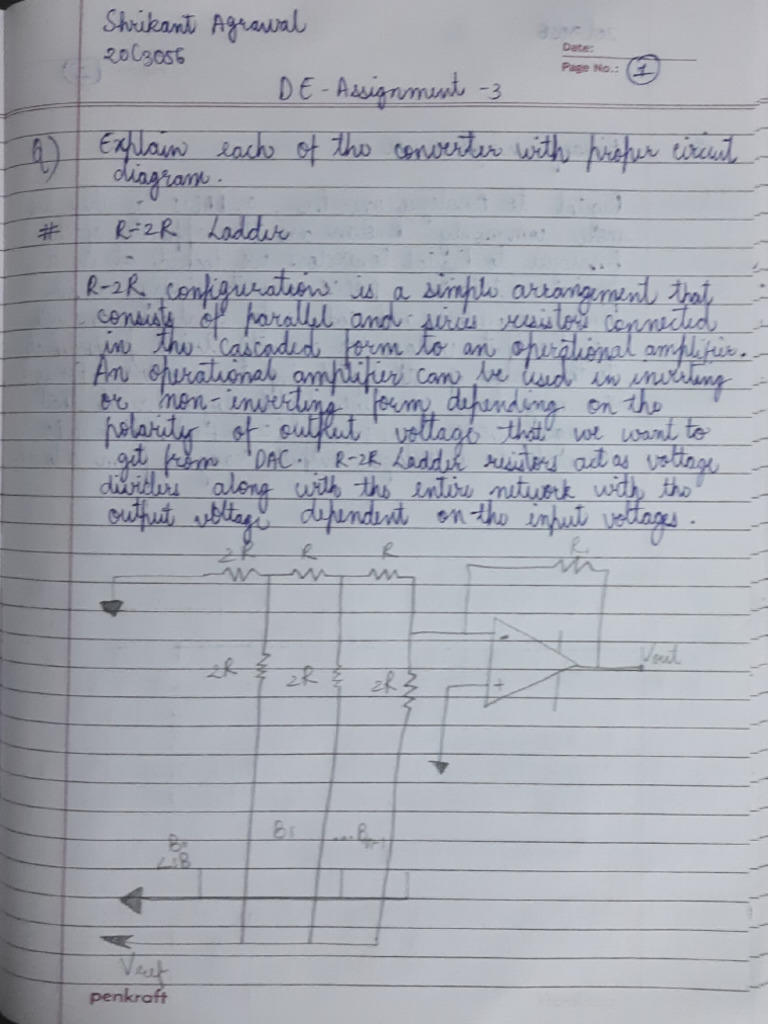 Shrikant Agrawal
20C3056
Date:
Page No.: 1
DE - Assignment - 3
Q) Explain each of the converter with proper circuit
diagram.
# R-2R Ladder
R-2R configuration is a simple arrangement that
consists of parallel and siries resistors connected
in the cascaded form to an operational amplifier.
An operational amplifier can be used in inverting
or non-inverting form depending on the
polarity of output voltage that we want to
get from DAC. R-2R Ladder resistors act as voltage
dividers along with the entire network with the
output voltage dependent on the input voltages.
2R R R R
- Vout
2R 2R 2R +
B1 ...Bn-1
LSB
Vref
penkraft